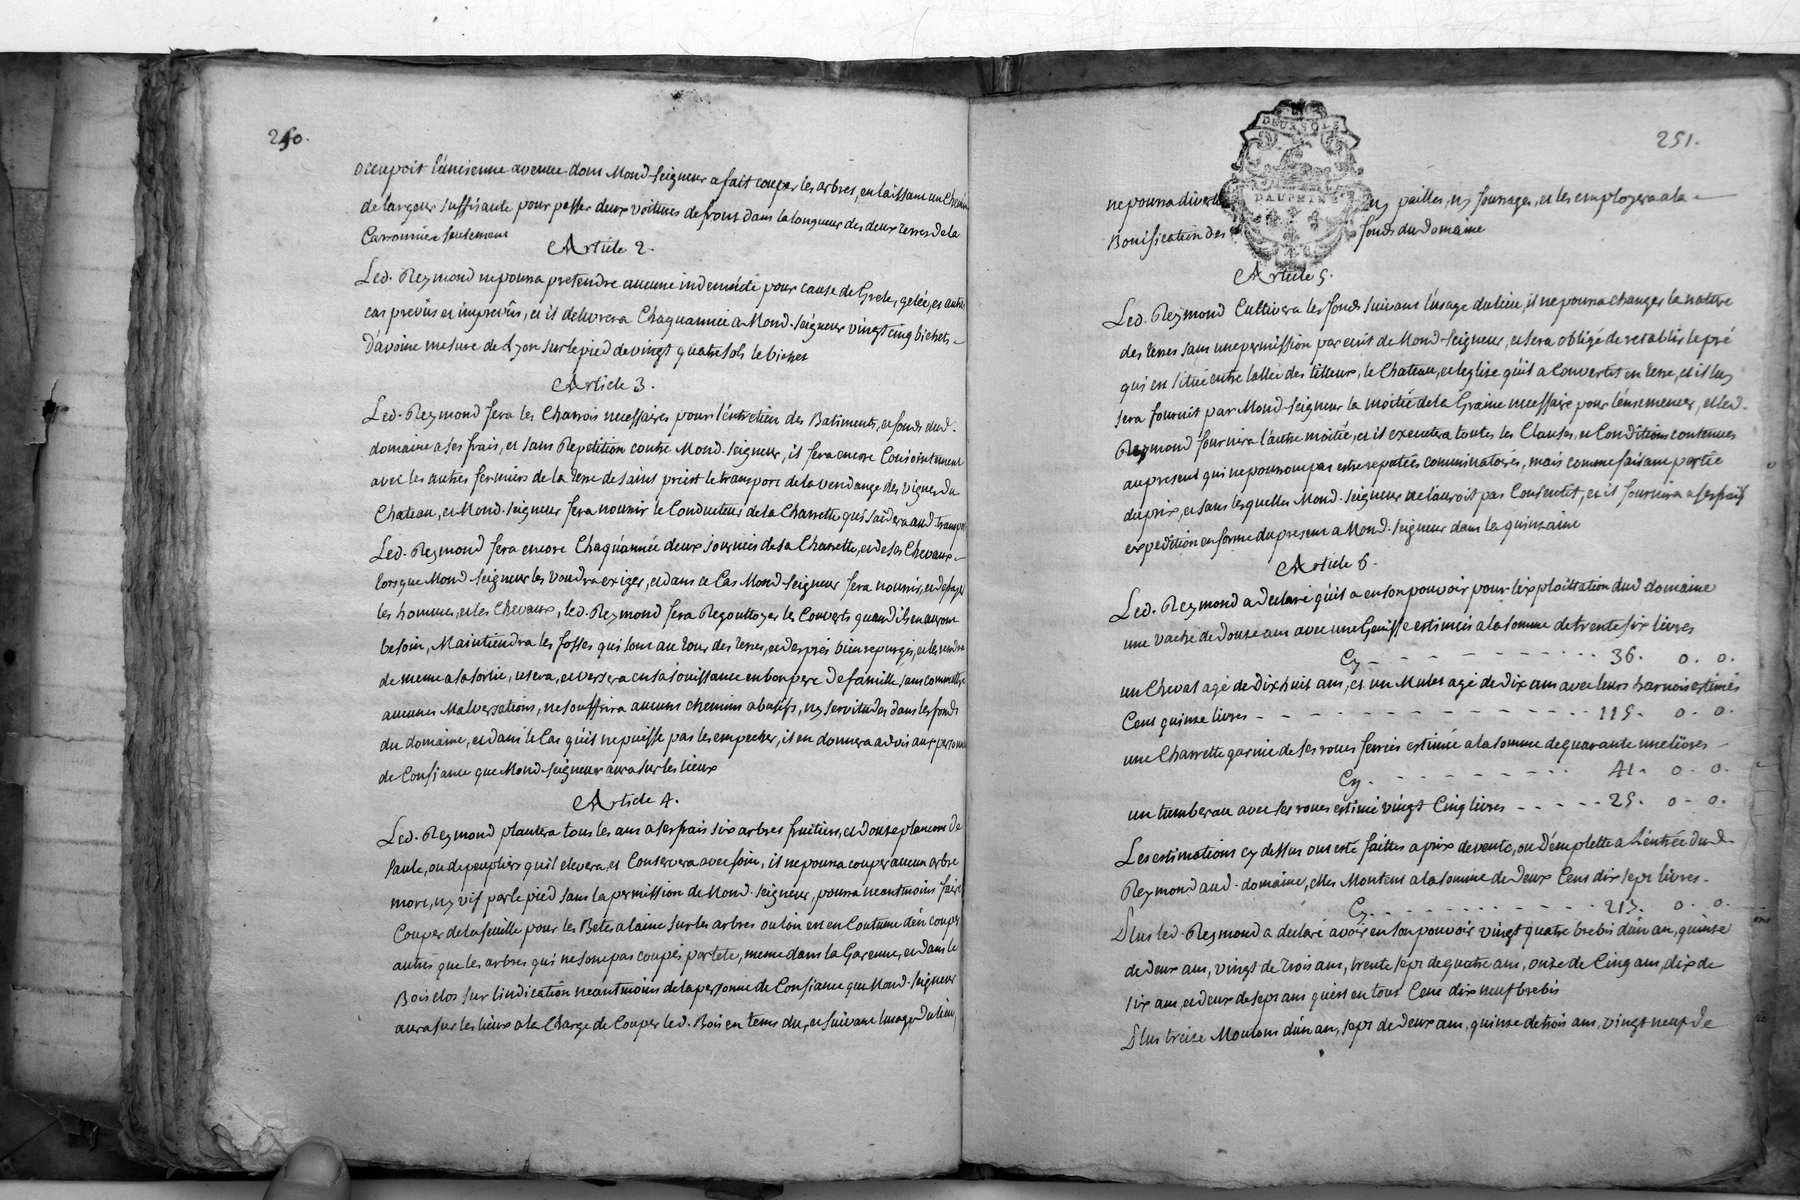 250.
occupoit l'ancienne avenue dont Mond. seigneur a fait couper les arbres, en laissant un chemin
de largeur suffisante pour passer deux voitures de front dans la longueur des deux terres de la
Carronniere seulement
Article 2.
Led. Reymond ne pourra pretendre aucune indemnité pour cause de Grele, gelée, et autres
cas prevûs et imprevûs, et il delivrera Chaqu'année a Mond. seigneur vingt cinq bichets
d'avoine mesure de Lyon sur le pied de vingt quatre sols le bichet
Article 3.
Led. Reymond fera les Charrois necessaires pour l'entretien des Batiments, et fonds dud.
domaine a ses frais, et sans Repetition contre Mond. seigneur, il fera encore Conjointement
avec les autres fermiers de la terre de saint priest le transport de la vendange des vignes du
Chateau, et Mond. seigneur fera nourrir le Conducteur de la Charrette qui s'aidera aud. transport
Led. Reymond fera encore Chaqu'année deux journées de sa Charrette, et de ses Chevaux
lorsque Mond. seigneur les voudra exiger, et dans ce Cas Mond. seigneur fera nourrir, et defrayer
les hommes, et les Chevaux, led. Reymond fera Regouttoyer les Couverts quand ils en auront
besoin, Maintiendra les fosses qui sont au tour des terres, et des prés bien repurgés, et les rendra
de meme a sa sortie, usera, et versera en sa jouissance en bon pere de famille sans commettre
aucunes Malversations, ne souffrira aucuns chemins abusifs, ny servitudes dans les fonds
du domaine, et dans le Cas qu'il ne puisse pas les empecher, il en donnera advis aux personnes
de Confiance que Mond. seigneur aura sur les lieux
Article 4.
Led. Reymond plantera tous les ans a ses frais six arbres fruitiers, et douze plancons de
saule, ou de peupliers qu'il elevera, et Conservera avec soin, il ne pourra couper aucun arbre
mort, ny vif par le pied sans la permission de Mond. seigneur, pourra neantmoins faire
Couper de la feuille pour les Betes a laine sur les arbres ou l'on est en Coutume d'en couper
autres que les arbres qui ne sont pas coupés par tete, meme dans la Garenne, et dans le
Bois clos sur l'indication neantmoins de la personne de Confiance que Mond. seigneur
aura sur les lieux a la Charge de Couper led. Bois en tems du, et suivant l'usage du lieu,
251.
DEUX SOLS
DAUPHINE
ne pourra divertir ny pailles, ny fourrages, et les employera a la
Bonification des fonds du domaine
Article 5.
Led. Reymond Cultivera les fonds suivant l'usage du lieu, il ne pourra changer la nature
des terres sans une permission par ecrit de Mond. seigneur, et sera obligé de retablir le pré
qui est situé entre l'allée des tilleux, le Chateau, et l'eglise qu'il a Convertit en terre, et il luy
sera fournit par Mond. seigneur la moitié de la Graine necessaire pour l'ensemencer, et led.
Reymond fournira l'autre moitié, et il executera toutes les Clauses, et Conditions contenues
au present qui ne pourront pas estre reputées comminatoires, mais comme faisant partie
du prix, et sans lesquelles Mond. seigneur ne l'auroit pas Consentit, et il fournira a ses frais
expedition en forme du present a Mond. seigneur dans la quinzaine
Article 6.
Led. Reymond a declaré qu'il a en son pouvoir pour l'exploittation dud. domaine
une vache de douze ans avec une Genisse estimées a la somme de trente six livres
Cy - - - - - - - - - 36. 0. 0.
un Cheval agé de dix huit ans, et un Mulet agé de dix ans avec leurs harnois estimés
Cent quinze livres - - - - - - - - - 115. 0. 0.
une Charrette garnie de ses roues ferrées estimée a la somme de quarante une livres
Cy. - - - - - - - - 41. 0. 0.
un tumberau avec ses roues estimé vingt Cinq livres - - - - - 25. 0. 0.
Les estimations cy dessus ont esté faittes a prix de vente, ou d'emplette a l'entrée dud.
Reymond aud. domaine, elles Montent a la somme de deux Cent dix sept livres.
Cy. - - - - - - - - 217. 0. 0.
Plus led. Reymond a declaré avoir en son pouvoir vingt quatre brebis d'un an, quinze
de deux ans, vingt de trois ans, trente sept de quatre ans, onze de Cinq ans, dix de
six ans, et deux de sept ans qu'est en tout Cent dix neuf brebis
Plus treize Moutons d'un an, sept de deux ans, quinze de trois ans, vingt neuf de